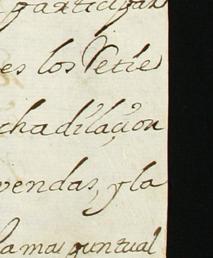 participar
es los Vetie
cha dilaçion
vendas, y la
la mas puntual